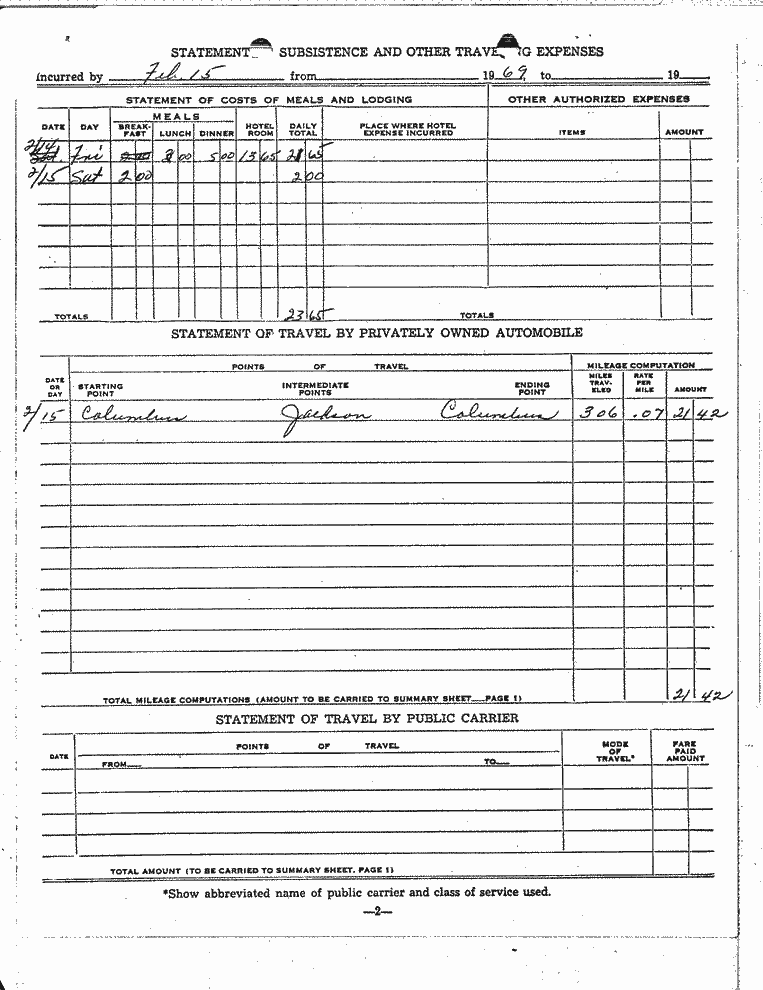 STATEMENT SUBSISTENCE AND OTHER TRAVE G EXPENSES
incurred by Feb. 15 from 1969, to 19
STATEMENT OF COSTS OF MEALS AND LODGING OTHER AUTHORIZED EXPENSES
DATE DAY MEALS BREAK-FAST LUNCH DINNER HOTEL ROOM DAILY TOTAL PLACE WHERE HOTEL EXPENSE INCURRED ITEMS AMOUNT
2/14 Fri 3 00 5 00 13 65 21 65
2/15 Sat 2 00 2 00
TOTALS 23 65 TOTALS
STATEMENT OF TRAVEL BY PRIVATELY OWNED AUTOMOBILE
POINTS OF TRAVEL MILEAGE COMPUTATION
DATE OR DAY STARTING POINT INTERMEDIATE POINTS ENDING POINT MILES TRAV-ELED RATE PER MILE AMOUNT
2/15 Columbus Jackson Columbus 306 .07 21 42
TOTAL MILEAGE COMPUTATIONS (AMOUNT TO BE CARRIED TO SUMMARY SHEET—PAGE 1) 21 42
STATEMENT OF TRAVEL BY PUBLIC CARRIER
DATE POINTS OF TRAVEL MODE OF TRAVEL* FARE PAID AMOUNT
FROM— TO—
TOTAL AMOUNT (TO BE CARRIED TO SUMMARY SHEET. PAGE 1)
*Show abbreviated name of public carrier and class of service used.
—2—